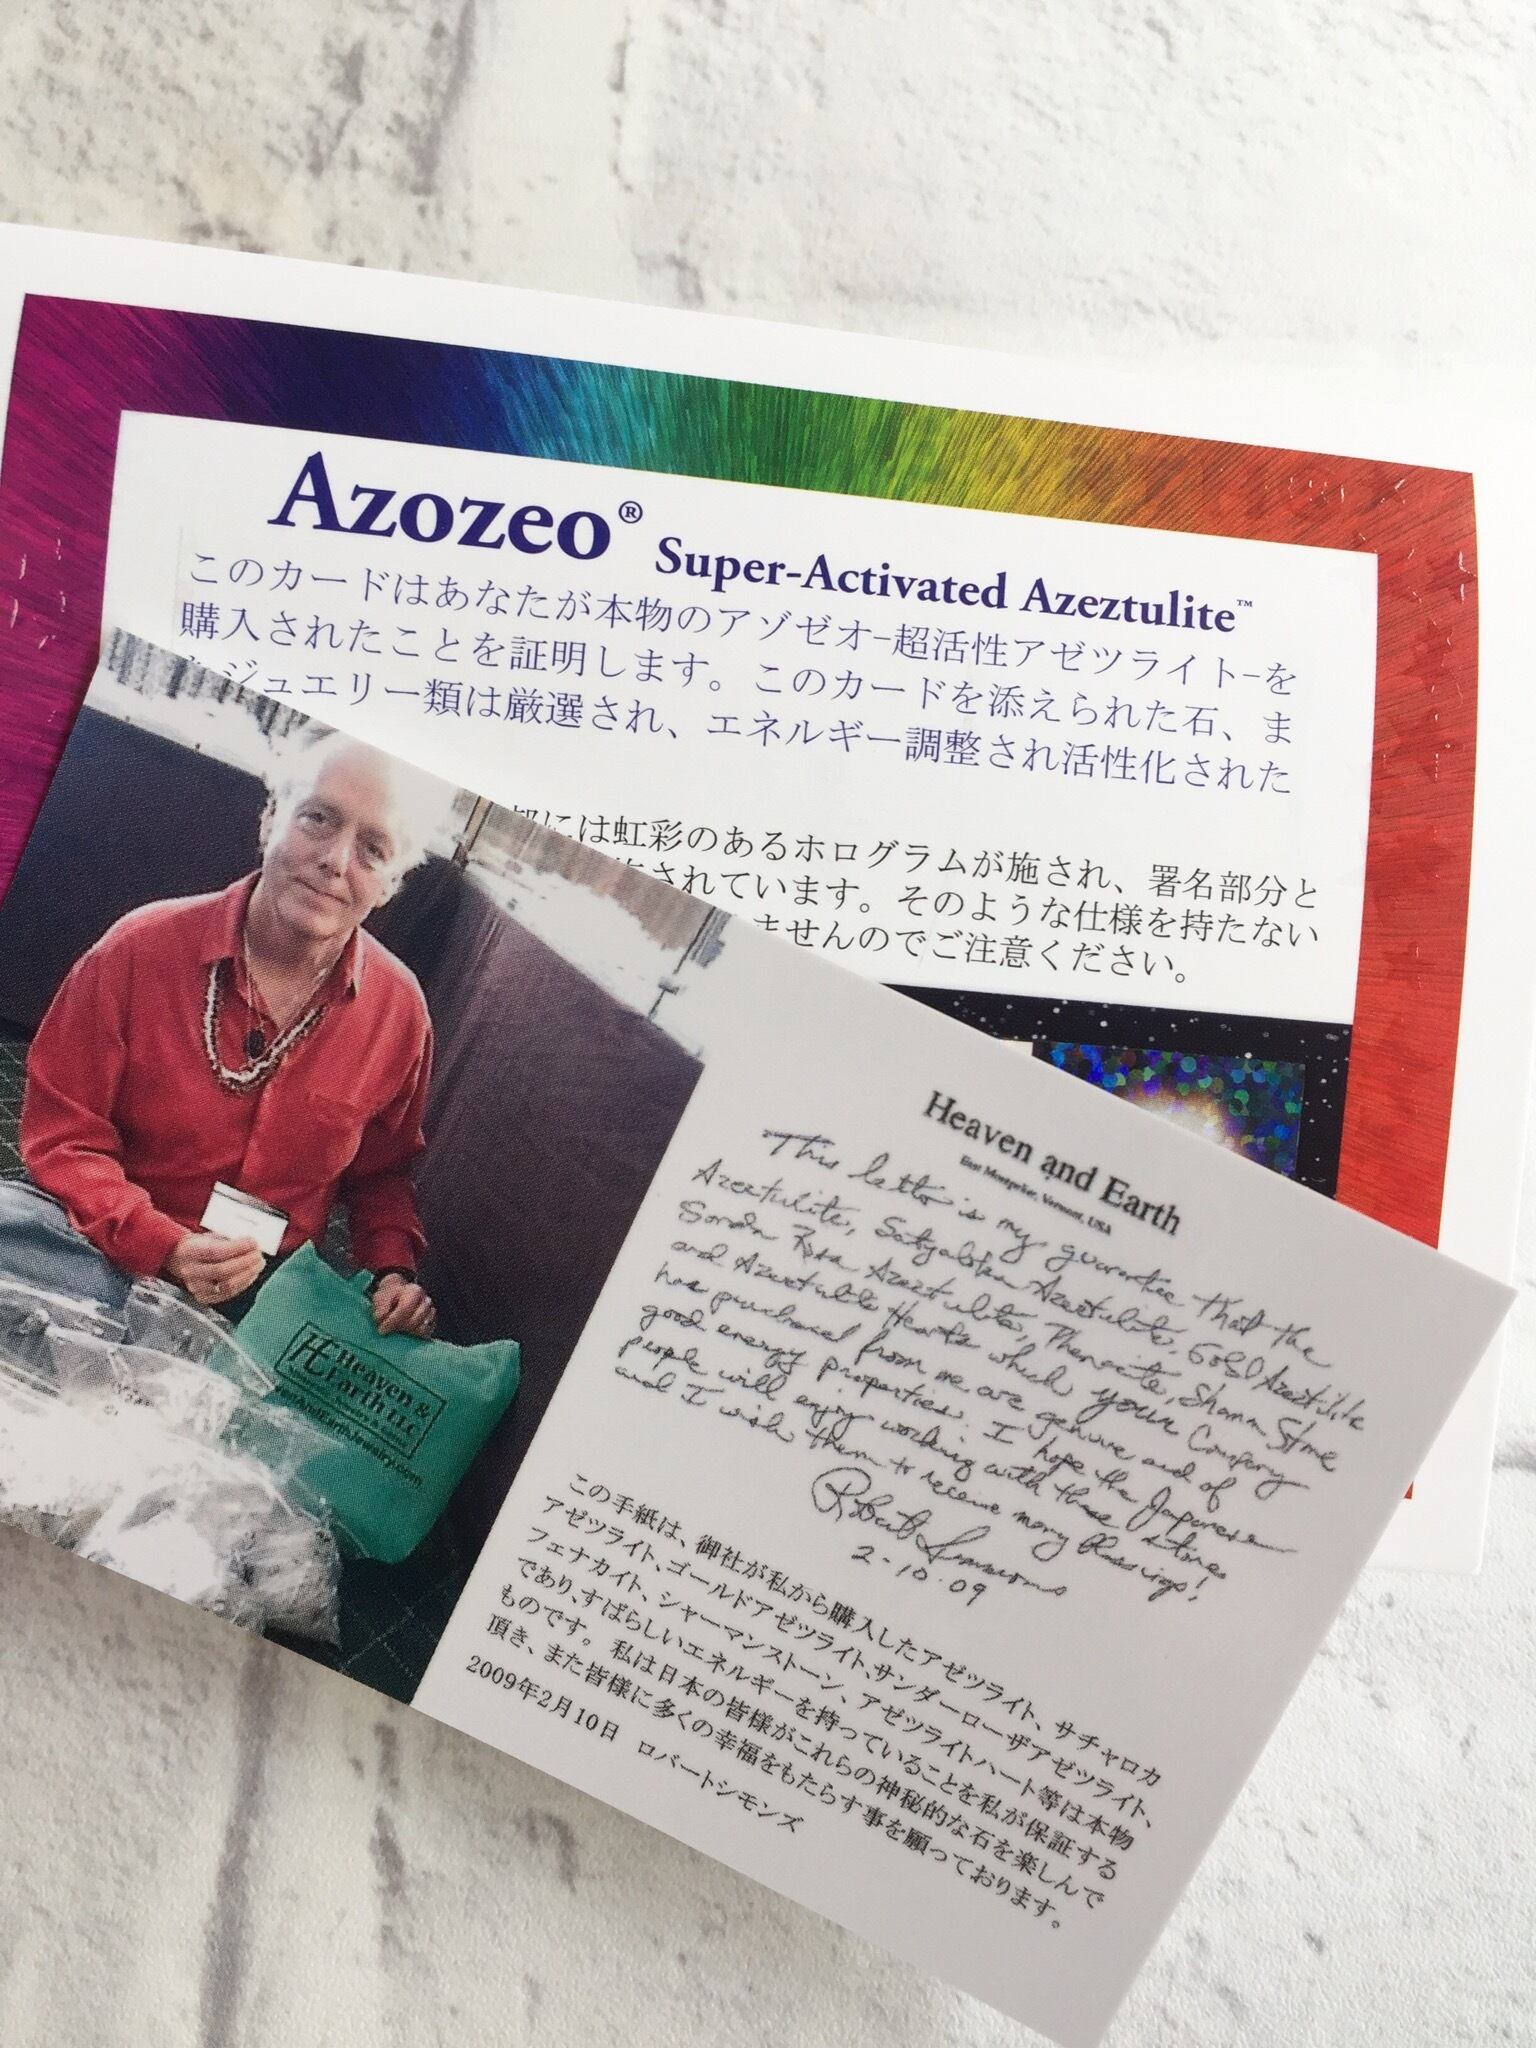 Azozeo® Super-Activated Azeztulite™
このカードはあなたが本物のアゾゼオ−超活性アゼツライト−を
購入されたことを証明します。このカードを添えられた石、ま
ジュエリー類は厳選され、エネルギー調整され活性化された
には虹彩のあるホログラムが施され、署名部分と
されています。そのような仕様を持たない
ませんのでご注意ください。
Heaven and Earth
East Montpelier, Vermont, USA
This letter is my guarantee that the
Azeztulite, Satyaloka Azeztulite, Gold Azeztulite
Sanda Rosa Azeztulite, Phenacite, Shaman Stone
and Azeztulite Hearts which your Company
has purchased from me are genuine and of
good energy properties. I hope the Japanese
people will enjoy working with these stones
and I wish them to receive many blessings!
Robert Simmons
2-10-09
この手紙は、御社が私から購入したアゼツライト、サチャロカ
アゼツライト、ゴールドアゼツライト、サンダーローザアゼツライト、
フェナカイト、シャーマンストーン、アゼツライトハート等は本物
であり、すばらしいエネルギーを持っていることを私が保証する
ものです。私は日本の皆様がこれらの神秘的な石を楽しんで
頂き、また皆様に多くの幸福をもたらす事を願っております。
2009年2月10日 ロバートシモンズ
HE Heaven &
Earth LLC